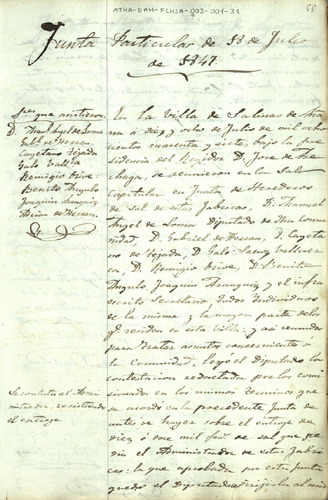 ATHA-DAH-FCHSA-003-001-31
58
Junta Particular de 18 de Julio
de 1847.
Sres que asistieron
D. Man.l Angel de Loma
Gab.l de Herran
Cayetano Tejada
Galo Valluerca
Remigio
Benito Angulo
Joaquin Aranguiz
Adrian de Herran
En la villa de Salinas de Aña
na á diez y ocho de Julio de mil ocho
cientos cuarenta y siete, bajo la Pre
sidencia del D. Jose de
se reunieron en la Sala
Capitular en Junta de Herederos
de sal de estas fabricas, D. Manuel
Angel de Loma Diputado de dha Comu
nidad, D. Gabriel de Herran, D. Cayeta
no de Tejada, D. Galo Saenz Vallu
erca, D. Remigio D. Benito
Angulo, Joaquin Aranguiz y el infra
escrito Secretario, todos individuos
de la misma y la mayor parte de los
q.e residen en esta villa: y asi reunidos
para tratar asuntos concernientes á
la Comunidad, leyó el Diputado la
contestacion redactada por los comi
sionados en los mismos terminos que
se acordó en la precedente Junta de
antes de hayer sobre el entroje de
diez ó once mil fan.s de sal que pe
dia el Administrador de estas fabri
cas: la que aprobada por esta junta
quedó el Diputado en dirijirla al
Se contesta al Admi
nistrador, resistiendo
el entroje.